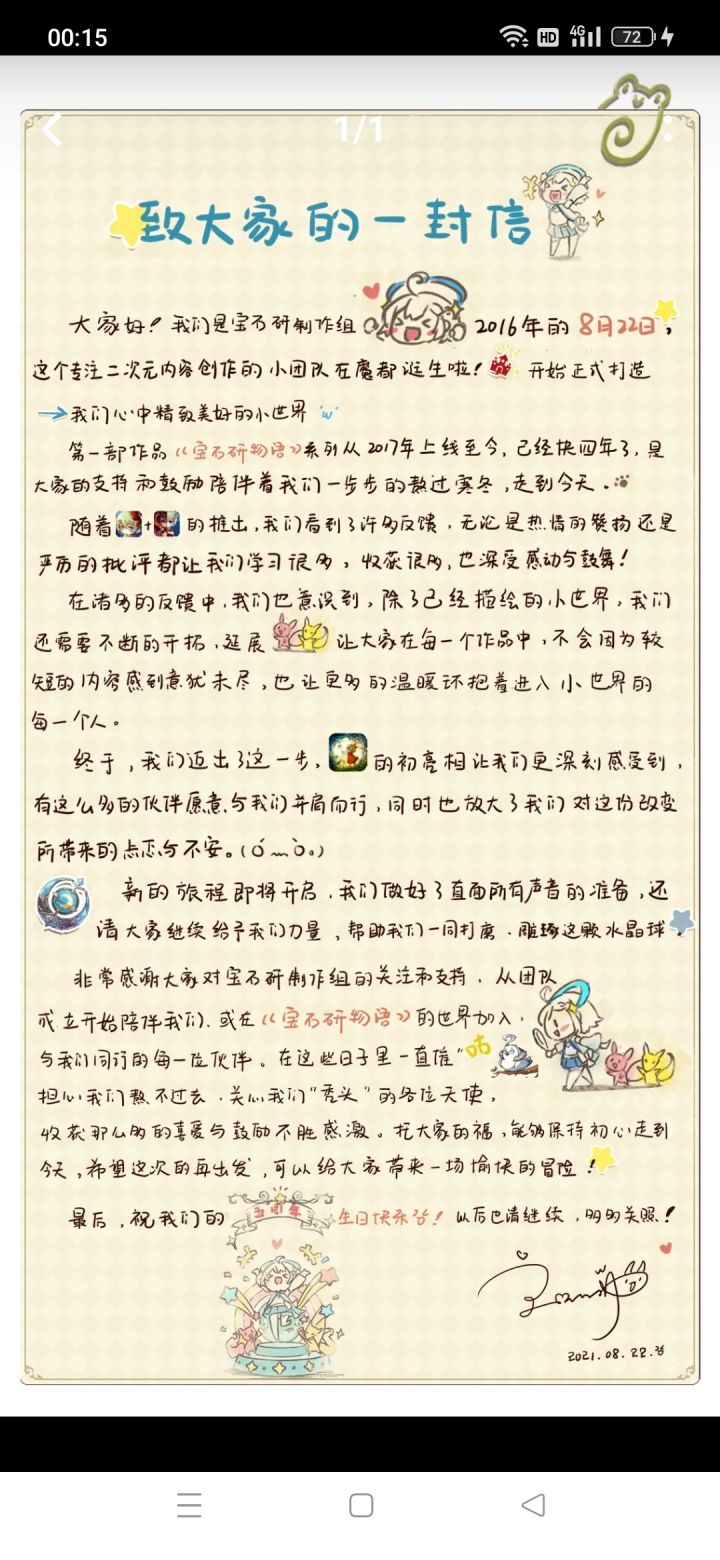 00:15
HD 4G 72
1/1
致大家的一封信
大家好！我们是宝石研制作组 2016年的8月22日，
这个专注二次元内容创作的小团队在魔都诞生啦！开始正式打造
→我们心中精致美好的小世界 'w'
第一部作品《宝石研物语》系列从2017年上线至今，已经快四年了，是
大家的支持和鼓励陪伴着我们一步步的熬过寒冬，走到今天。
随着+的推出，我们看到了许多反馈，无论是热情的赞扬还是
严厉的批评都让我们学习很多，收获很多，也深受感动与鼓舞！
在诸多的反馈中，我们也意识到，除了已经描绘的小世界，我们
还需要不断的开拓，延展 让大家在每一个作品中，不会因为较
短的内容感到意犹未尽，也让更多的温暖环抱着进入小世界的
每一个人。
终于，我们迈出了这一步，的初亮相让我们更深刻感受到，
有这么多的伙伴愿意与我们并肩而行，同时也放大了我们对这份改变
所带来的忐忑与不安。(ó﹏ò。)
新的旅程即将开启，我们做好了直面所有声音的准备，还
请大家继续给予我们力量，帮助我们一同打磨、雕琢这颗水晶球。
非常感谢大家对宝石研制作组的关注和支持，从团队
成立开始陪伴我们、或在《宝石研物语》的世界加入，
与我们同行的每一位伙伴。在这些日子里一直催“咕
担心我们熬不过去、关心我们“秃头”的各位天使，
收获那么多的喜爱与鼓励不胜感激。托大家的福，能够保持初心走到
今天，希望这次的再出发，可以给大家带来一场愉快的冒险！
最后，祝我们的 五周年 生日快乐！以后也请继续，多多关照！
2021.08.22